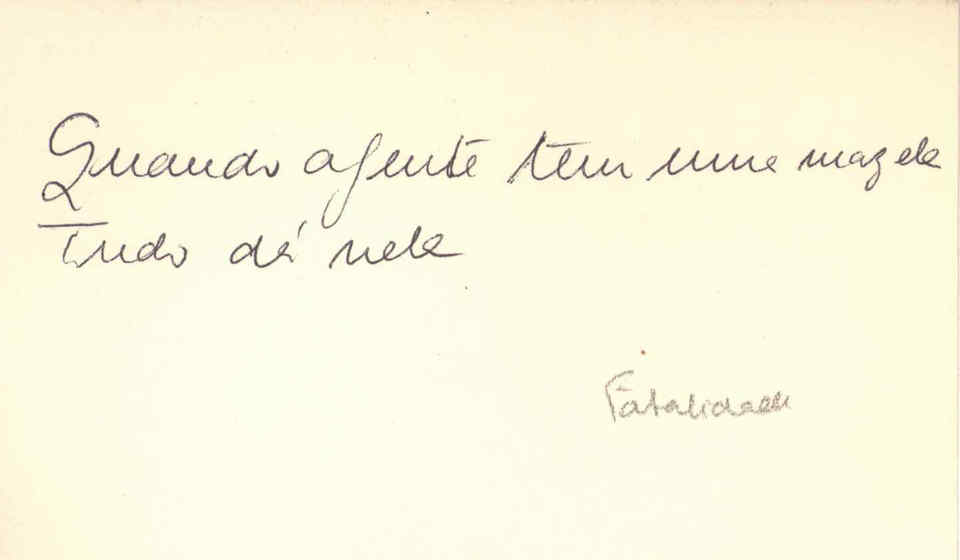 Quando a gente tem uma mazela
Tudo dá nela
Fatalidade